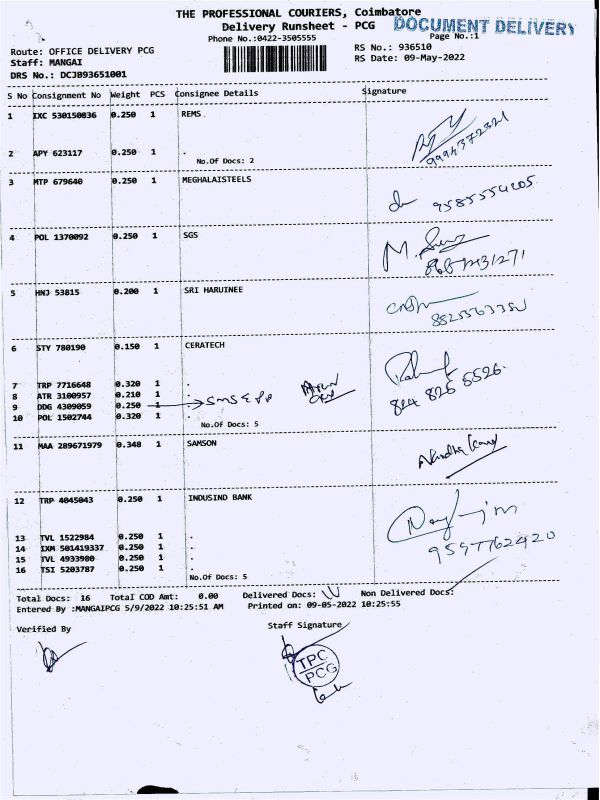 THE PROFESSIONAL COURIERS, Coimbatore
Delivery Runsheet - PCG
DOCUMENT DELIVERY
Phone No.:0422-3505555
Page No.:1
Route: OFFICE DELIVERY PCG
RS No.: 936510
Staff: MANGAI
RS Date: 09-May-2022
DRS No.: DCJB93651001
S No Consignment No Weight PCS Consignee Details Signature
1 IXC 530150836 0.250 1 REMS
9994372321
2 APY 623117 0.250 1 .
No.Of Docs: 2
3 MTP 679640 0.250 1 MEGHALAISTEELS
9585554205
4 POL 1370092 0.250 1 SGS
5 HNJ 53815 0.200 1 SRI HARUINEE
6 STY 780190 0.150 1 CERATECH
7 TRP 7716648 0.320 1 .
8 ATR 3100957 0.210 1 .
9 DDG 4309059 0.250 1 .
10 POL 1502744 0.320 1 .
No.Of Docs: 5
11 MAA 289671979 0.348 1 SAMSON
12 TRP 4045043 0.250 1 INDUSIND BANK
9597762420
13 TVL 1522984 0.250 1 .
14 IXM 501419337 0.250 1 .
15 TVL 4933980 0.250 1 .
16 TSI 5203787 0.250 1 .
No.Of Docs: 5
Total Docs: 16 Total COD Amt: 0.00 Delivered Docs: Non Delivered Docs:
Entered By :MANGAIPCG 5/9/2022 10:25:51 AM Printed on: 09-05-2022 10:25:55
Verified By
Staff Signature
TPC
PCG